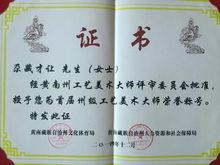 证书
尕藏才让 先生（女士）
经黄南州工艺美术大师评审委员会批准，
授予您为首届州级工艺美术大师荣誉称号。
特发此证
黄南藏族自治州文化体育局
黄南藏族自治州人力资源和社会保障局
二〇一四年十二月